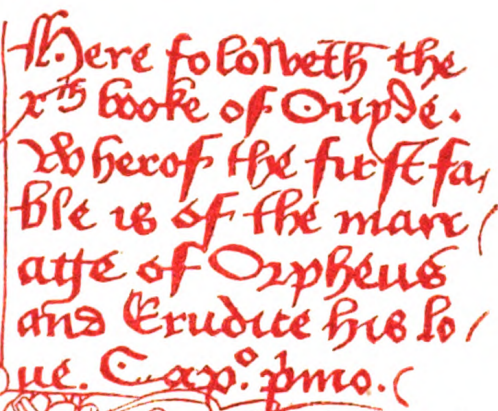 Here foloweth the
xth booke of Ouyde.
Wherof the first fa/
ble is of the mari/
atge of Orpheus
and Erudice his lo/
ue. Cap.o p͞mo.